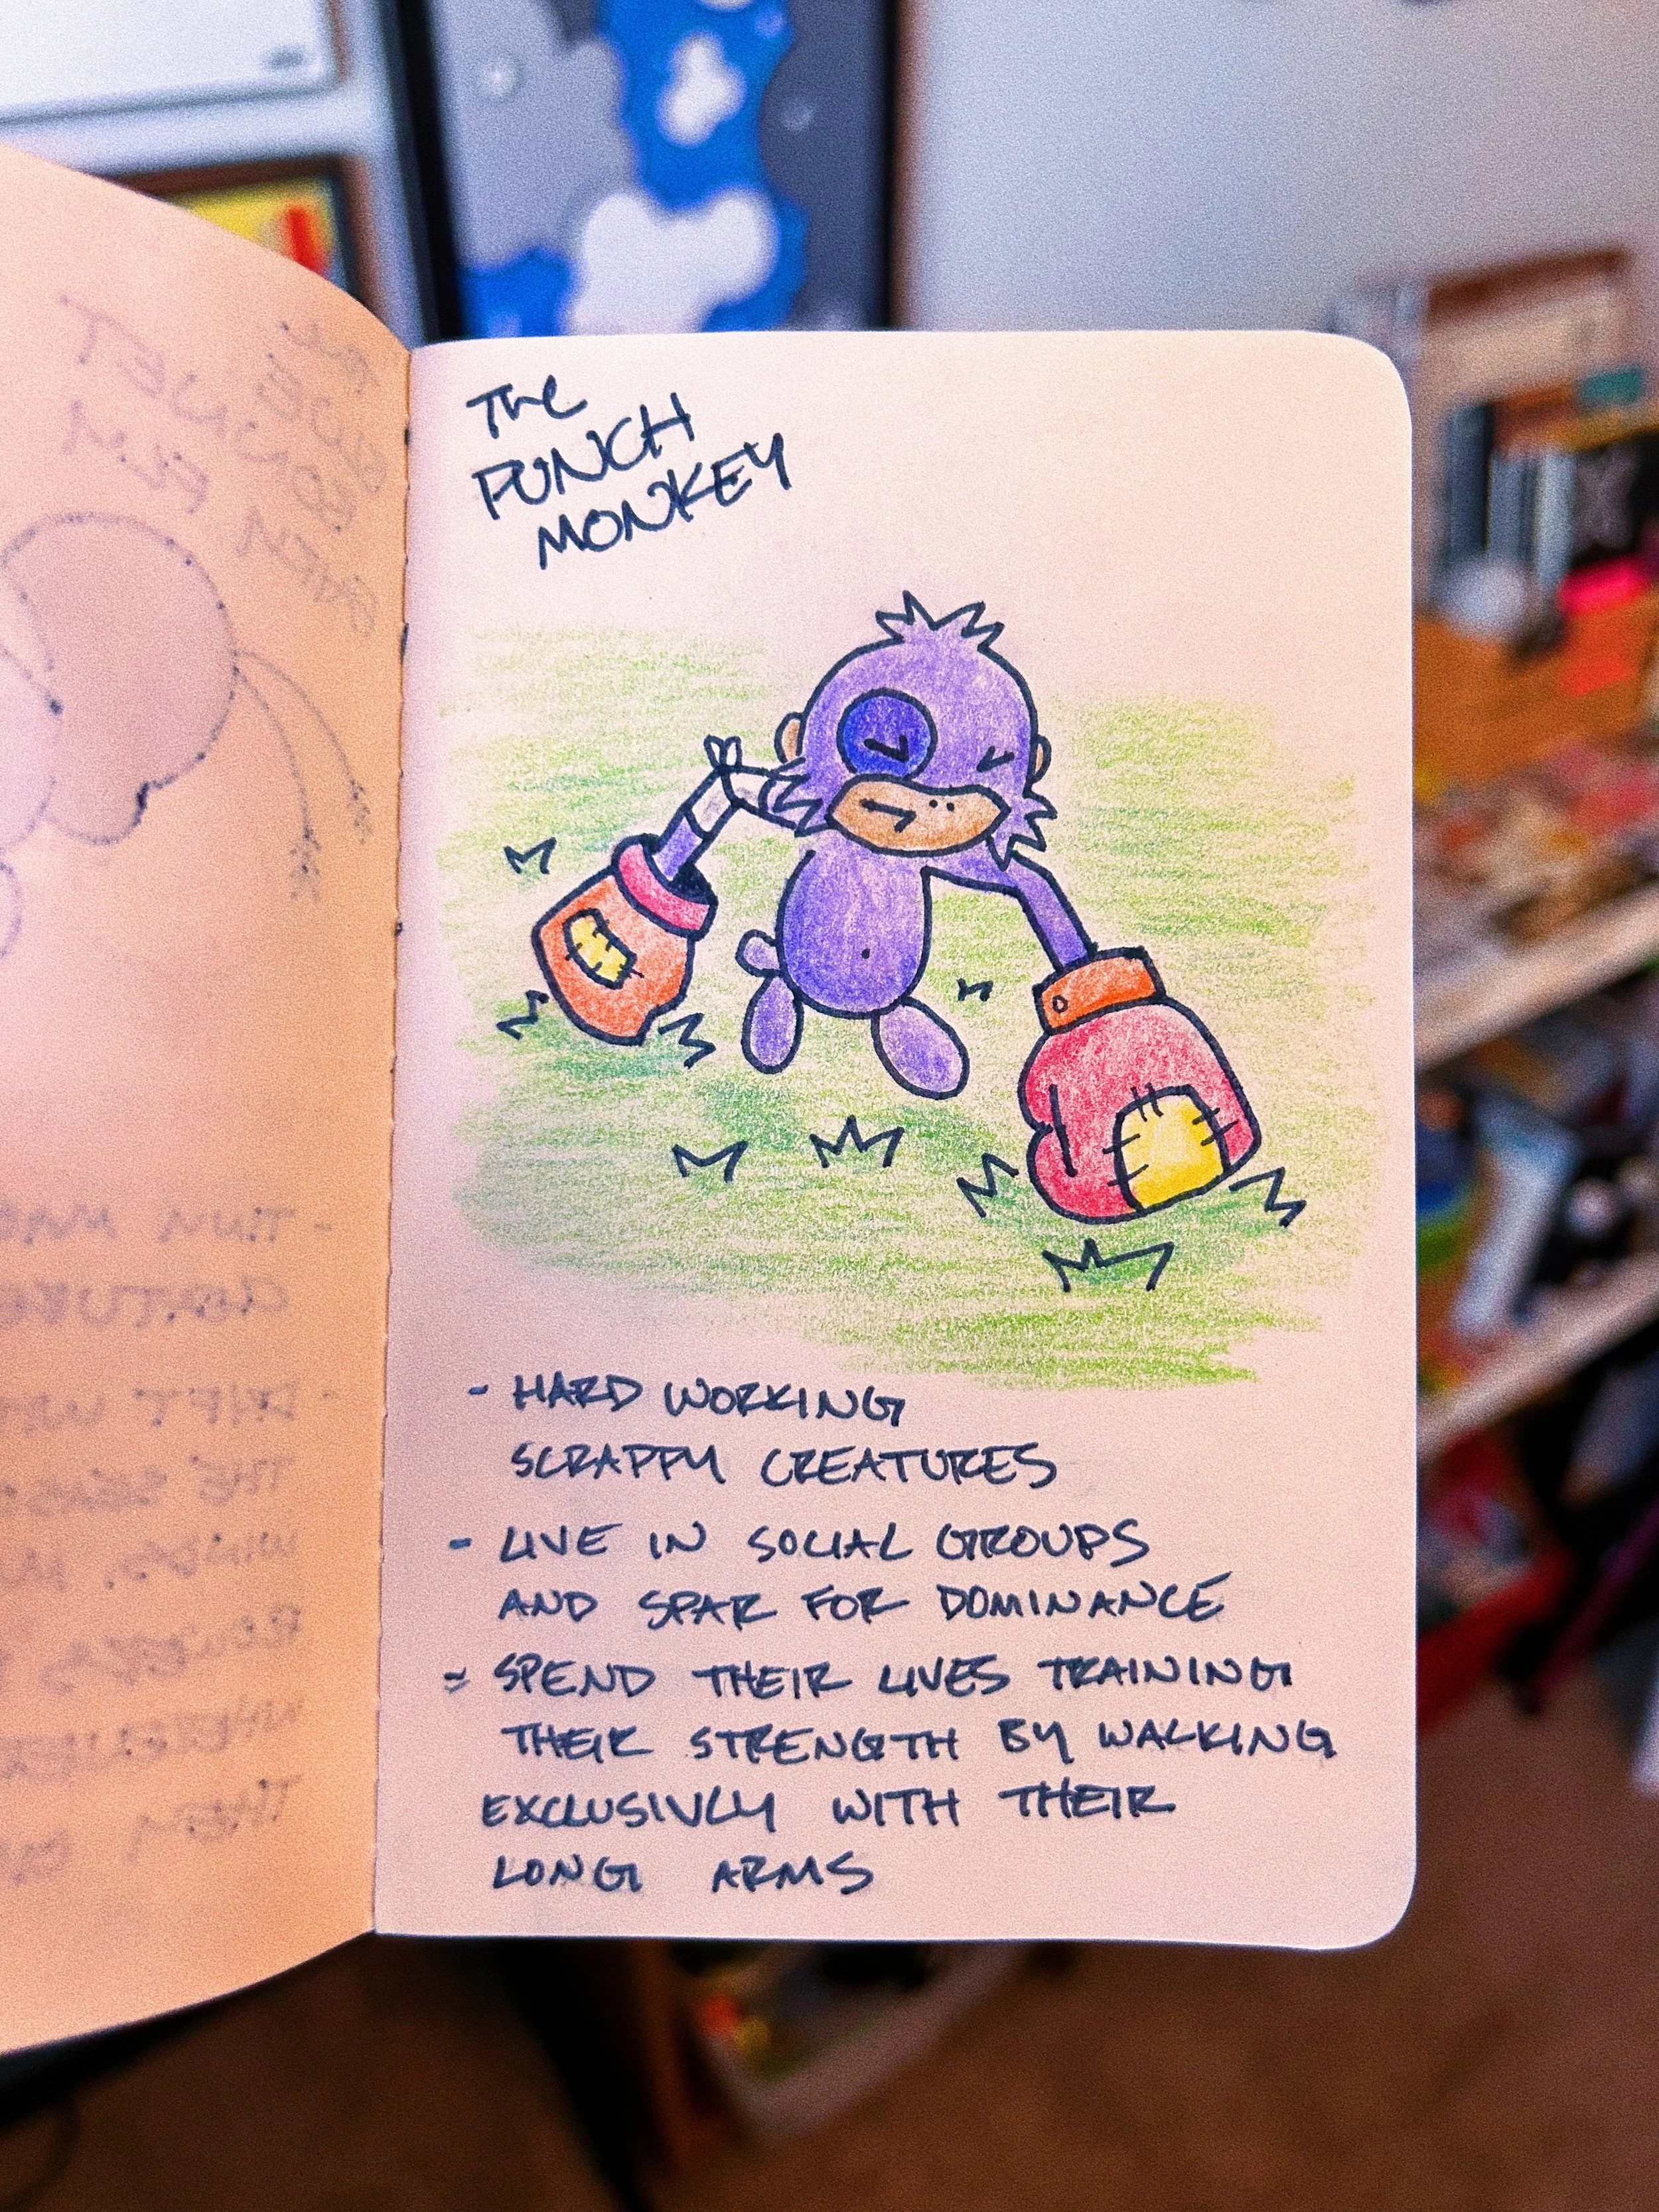 The
PUNCH
MONKEY
- HARD WORKING
SCRAPPY CREATURES
- LIVE IN SOCIAL GROUPS
AND SPAR FOR DOMINANCE
- SPEND THEIR LIVES TRAINING
THEIR STRENGTH BY WALKING
EXCLUSIVLY WITH THEIR
LONG ARMS